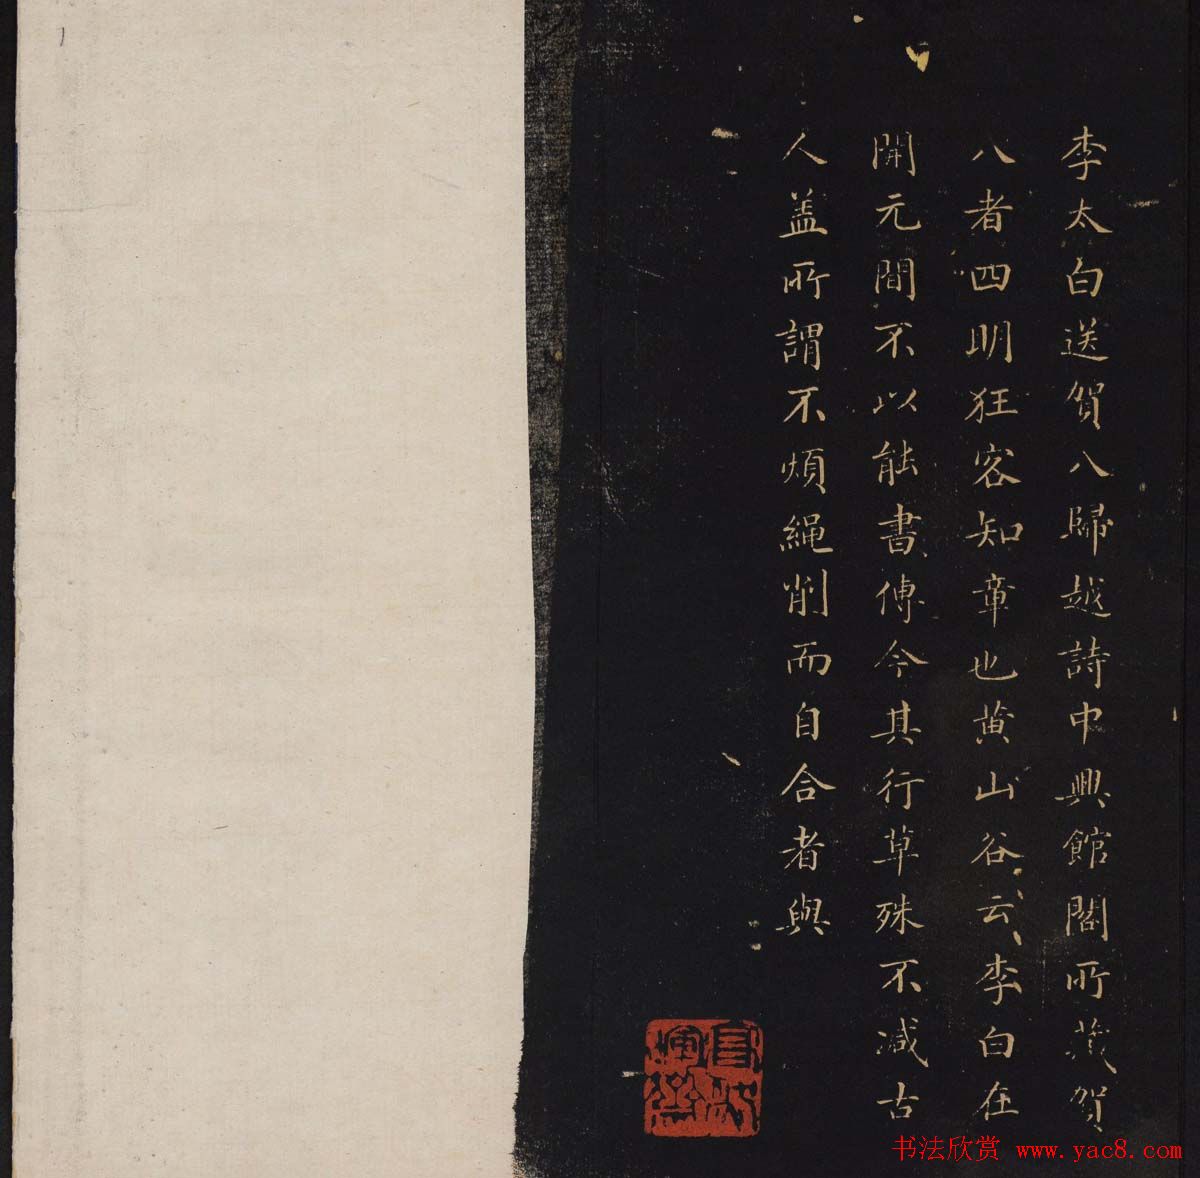 李太白送贺八歸越詩中興館閣所藏賀
八者四明狂客知章也黄山谷云李白在
開元間不以能書傳今其行草殊不减古
人盖所謂不煩繩削而自合者與
书法欣赏 www.yac8.com